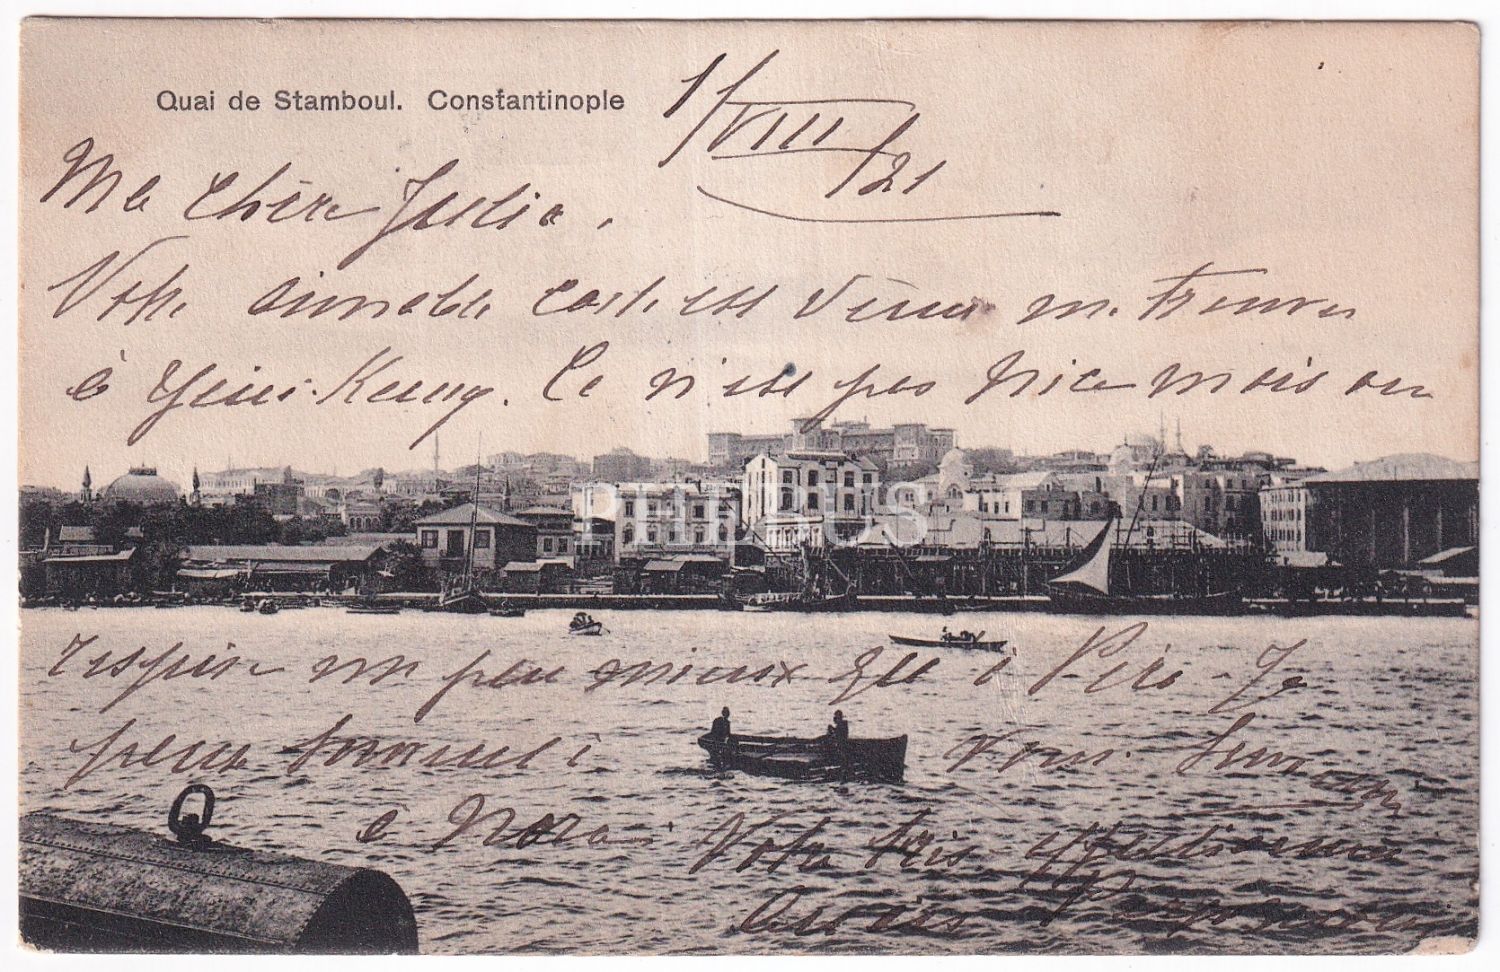 Quai de Stamboul. Constantinople
1/VIII/21
Ma chère Julia,
Votre aimable carte est venue me trouver
à Yeni-Keuy. Ce n'est pas Nice mais on
respire un peu mieux qu'à Péra. Je
peux
à Nora. Votre très
PHEBUS